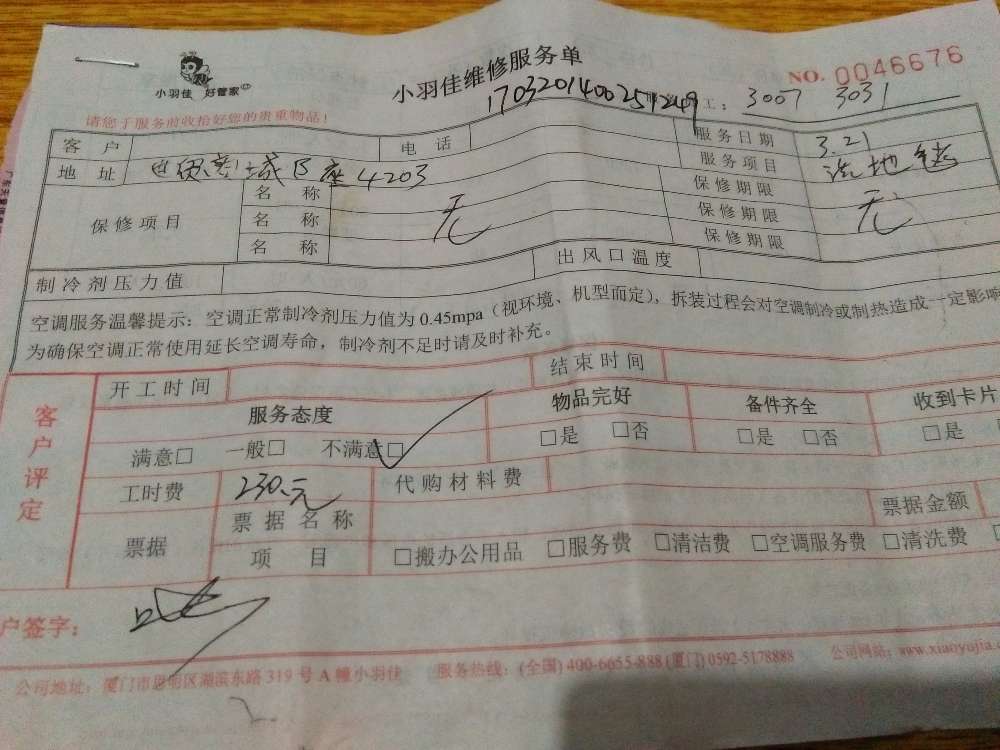 小羽佳 好管家
小羽佳维修服务单
NO. 0046676
1703201400251249 工: 3007 3031
请您于服务前收拾好您的贵重物品!
客户 电话 服务日期 3.21
地址 城B座4203 服务项目 洗地毯
保修项目 名称 无 保修期限 无
名称 保修期限
名称 保修期限
制冷剂压力值 出风口温度
空调服务温馨提示:空调正常制冷剂压力值为0.45mpa(视环境、机型而定),拆装过程会对空调制冷或制热造成一定影响
为确保空调正常使用延长空调寿命,制冷剂不足时请及时补充。
客户评定
开工时间 结束时间
服务态度 物品完好 备件齐全 收到卡片
满意□ 一般□ 不满意□ □是 □否 □是 □否 □是
工时费 230.元 代购材料费
票据 票据名称 票据金额
项目 □搬办公用品 □服务费 □清洁费 □空调服务费 □清洗费
户签字:
公司地址:厦门市思明区湖滨东路319号A幢小羽佳 服务热线:(全国)400-6655-888(厦门)0592-5178888 公司网站:www.xiaoyujia.c